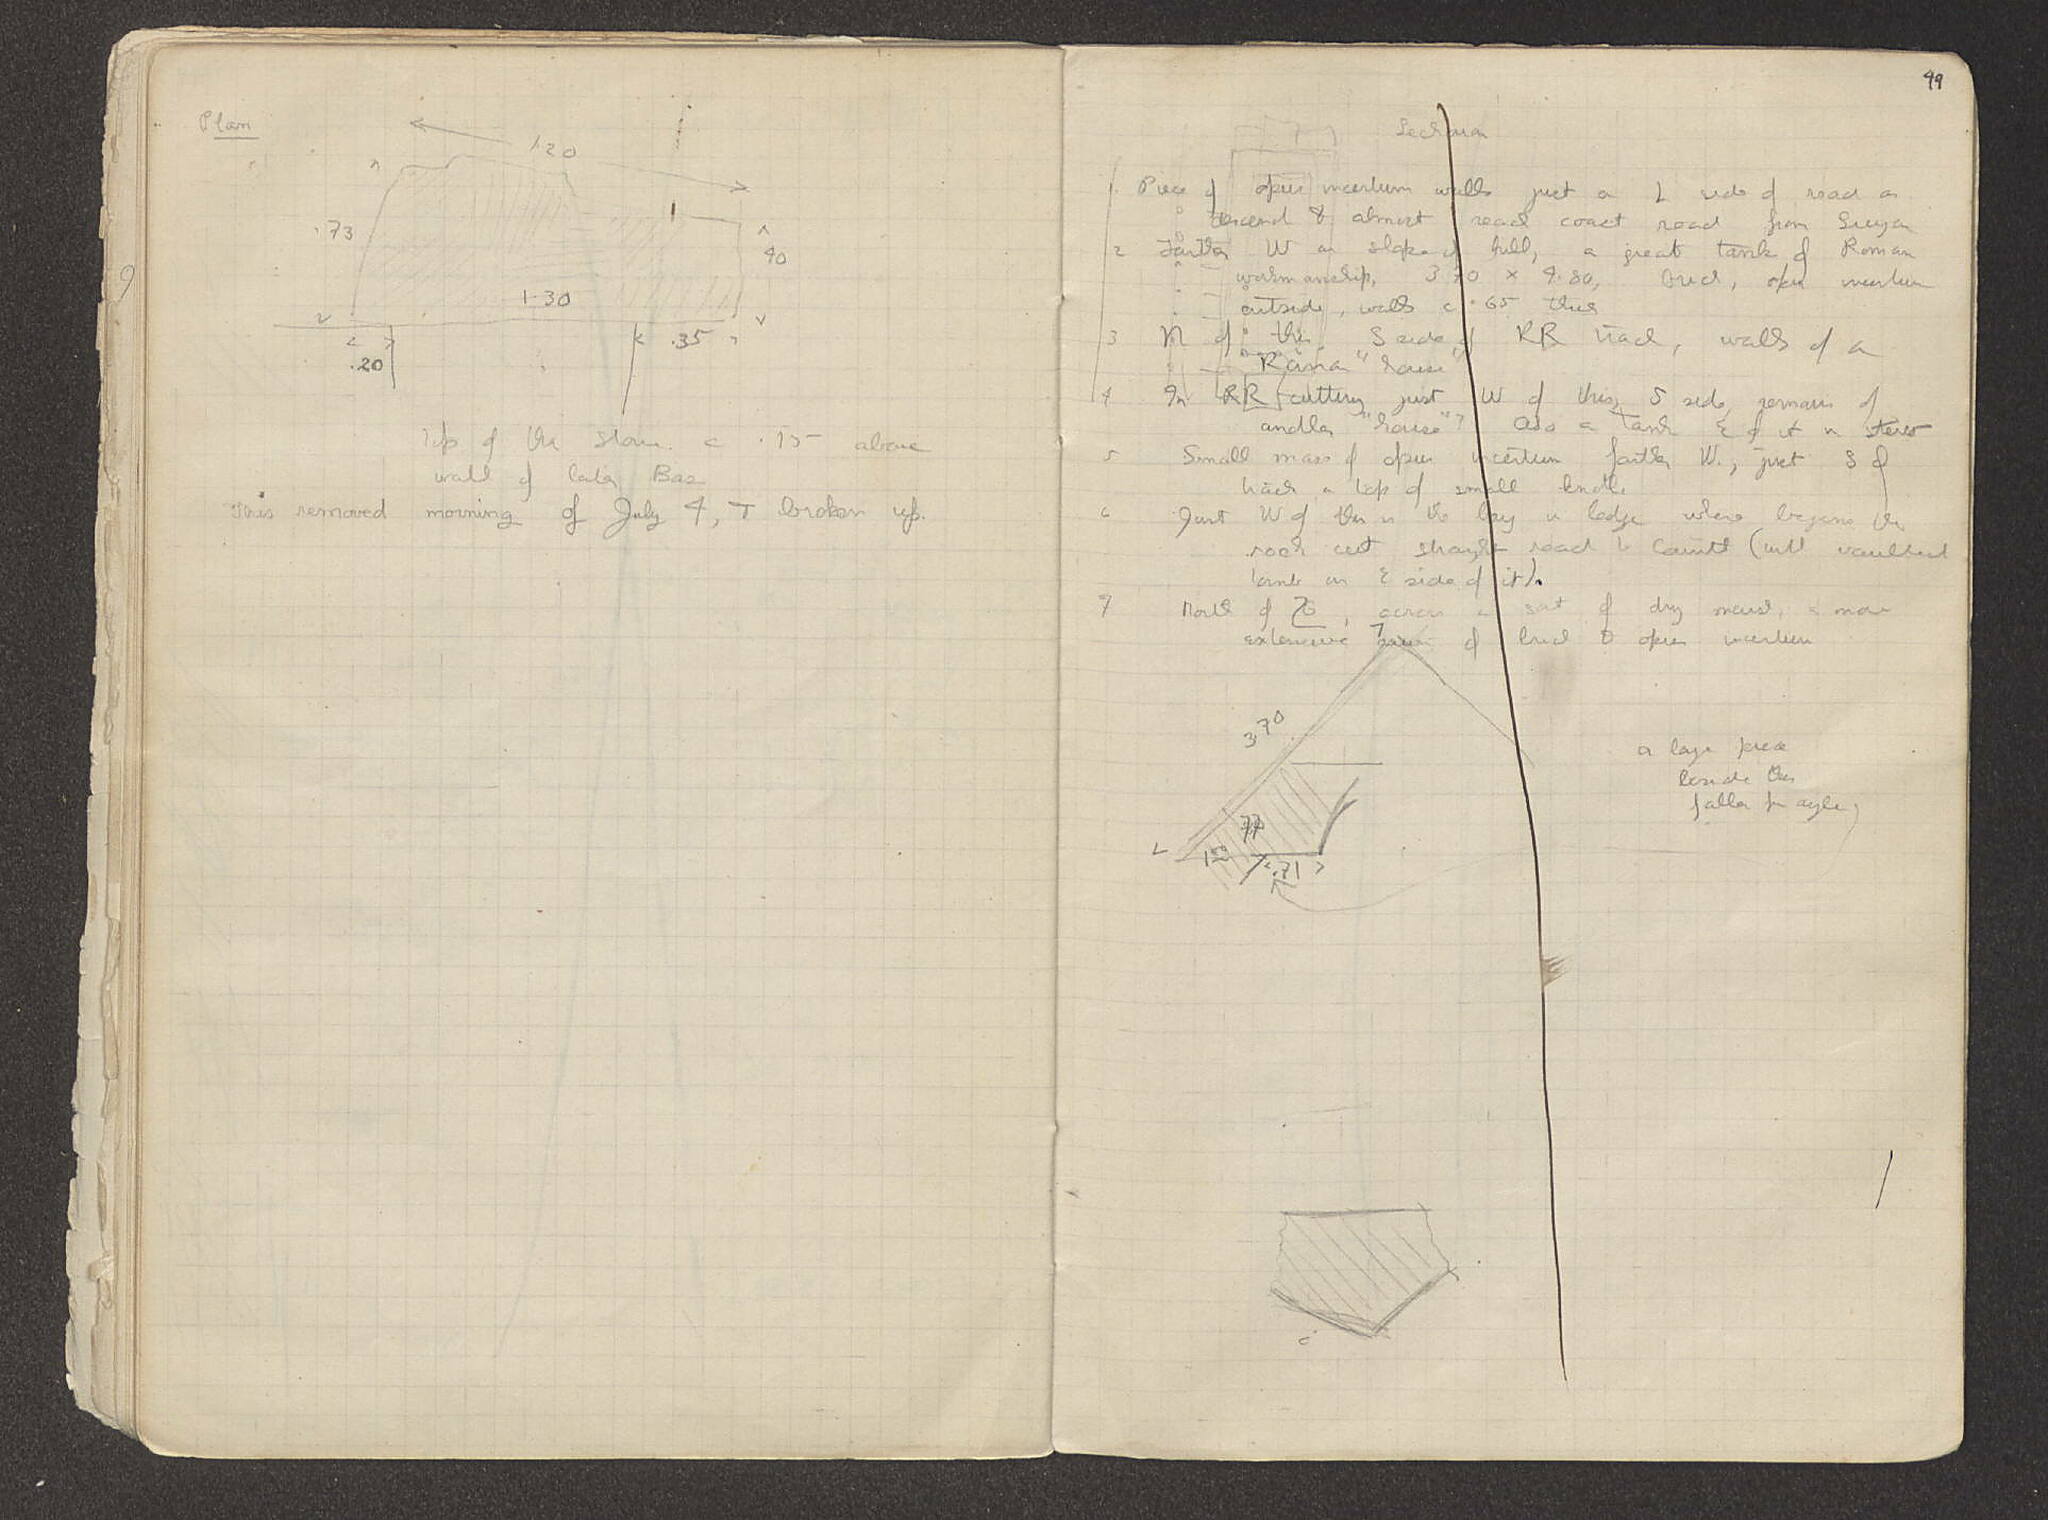 Plan
1.20
.73
.40
1.30
.20
.35
Top of the stone c .15 above
wall of later Bas
This removed morning of July 4, & broken up.
49
Lechaion
1. Piece of opus incertum walls just on L side of road as
descend & almost reach coast road from
2 Farther W on slope of hill, a great tank of Roman
workmanship, 3.70 × 4.80, brick, opus incertum
outside, walls c .65 thick
3 N of this S side of RR track, walls of a
Roman "house"
4 In RR cutting just W of this, S side, remains of
another "house"? Also a tank E of it
5 Small mass of opus incertum farther W., just S of
track on top of small knoll
6 Just W of this is the ledge where begins the
rock cut straight road to Corinth (with vaulted
tomb on E side of it).
7 North of 6, across a sort of dry marsh, a more
extensive of brick & opus incertum
3.70
a large piece
beside this
fallen fr angle
.77
.71